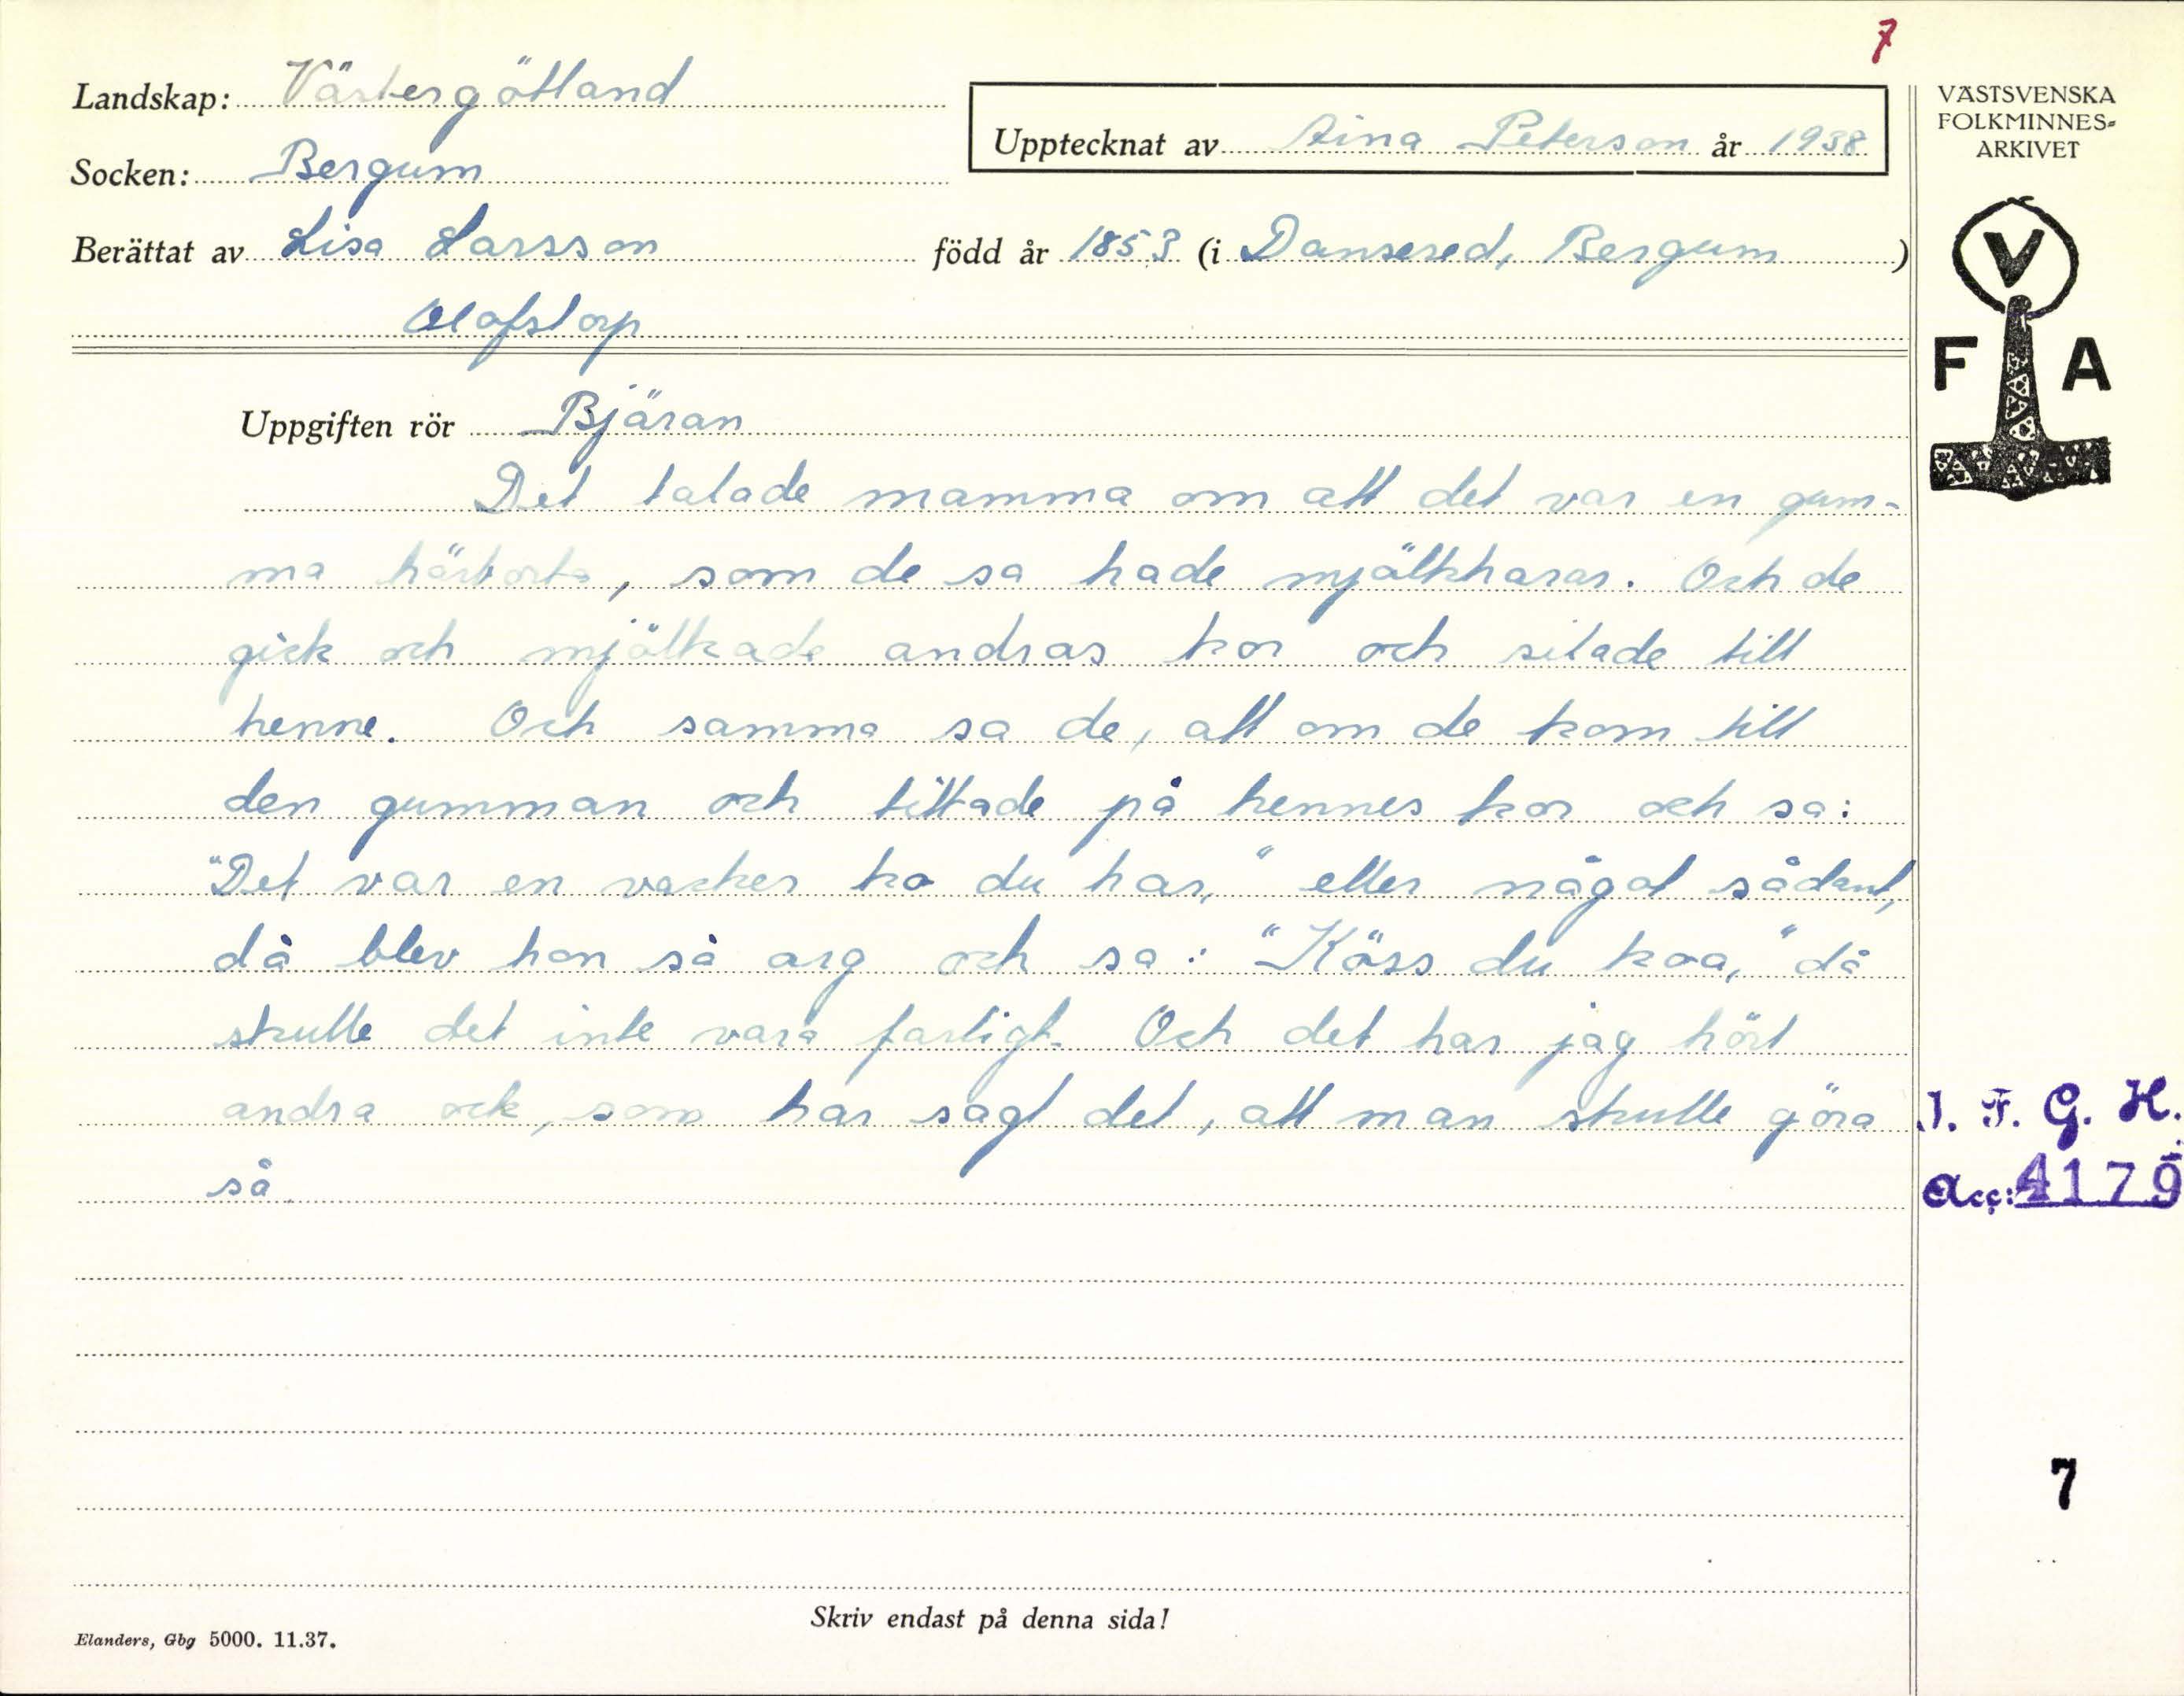 7
Landskap: Västergötland
Upptecknat av Aina Peterson år 1938
Socken: Bergum
Berättat av Lisa Larsson född år 1853 (i Dansered, Bergum )
Olofstorp
VÄSTSVENSKA
FOLKMINNES=
ARKIVET
V
F A
Uppgiften rör Bjäran
Det talade mamma om att det var en gum-
ma härborta, som de sa hade mjölkharar. Och de
gick och mjölkade andras kor och silade till
henne. Och samma sa de, att om de kom till
den gumman och tittade på hennes kor och sa:
"Det var en vacker ko du har," eller något sådant,
då blev hon så arg och sa: "Köss du koa," då
skulle det inte vara farligt. Och det har jag hört
andra ock, som har sagt det, att man skulle göra
så.
I. F. G. H.
Acc: 4179
7
Skriv endast på denna sida!
Elanders, Gbg 5000. 11.37.